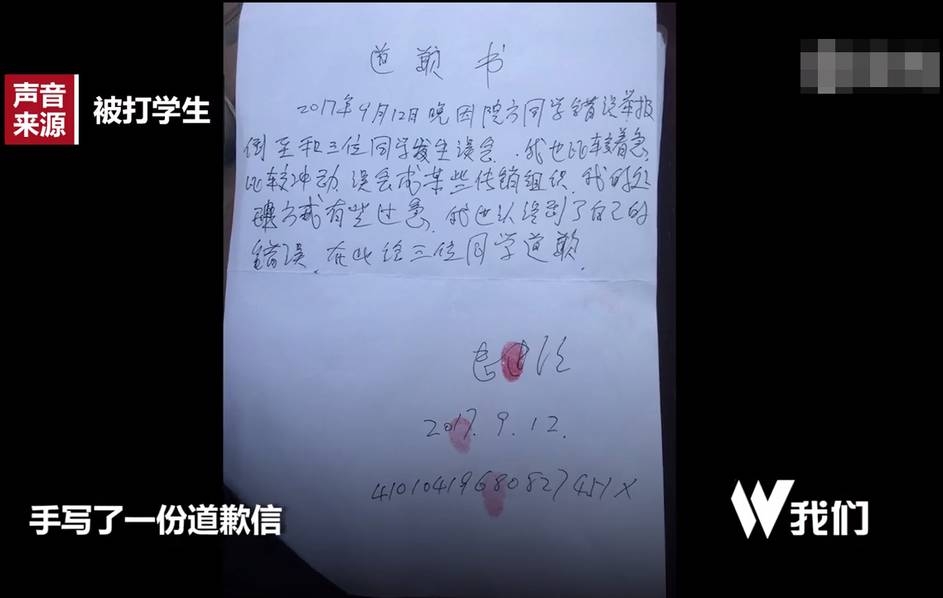 声音
来源
被打学生
道歉书
2017年9月12日晚因院方同学错误举报
倒至和三位同学发生误会.我也比较着急,
比较冲动,误会成某些传销组织.我的处
理方式有些过急,我也认识到了自己的
错误.在此给三位同学道歉.
2017.9.12.
41010419680827451X
手写了一份道歉信
W我们